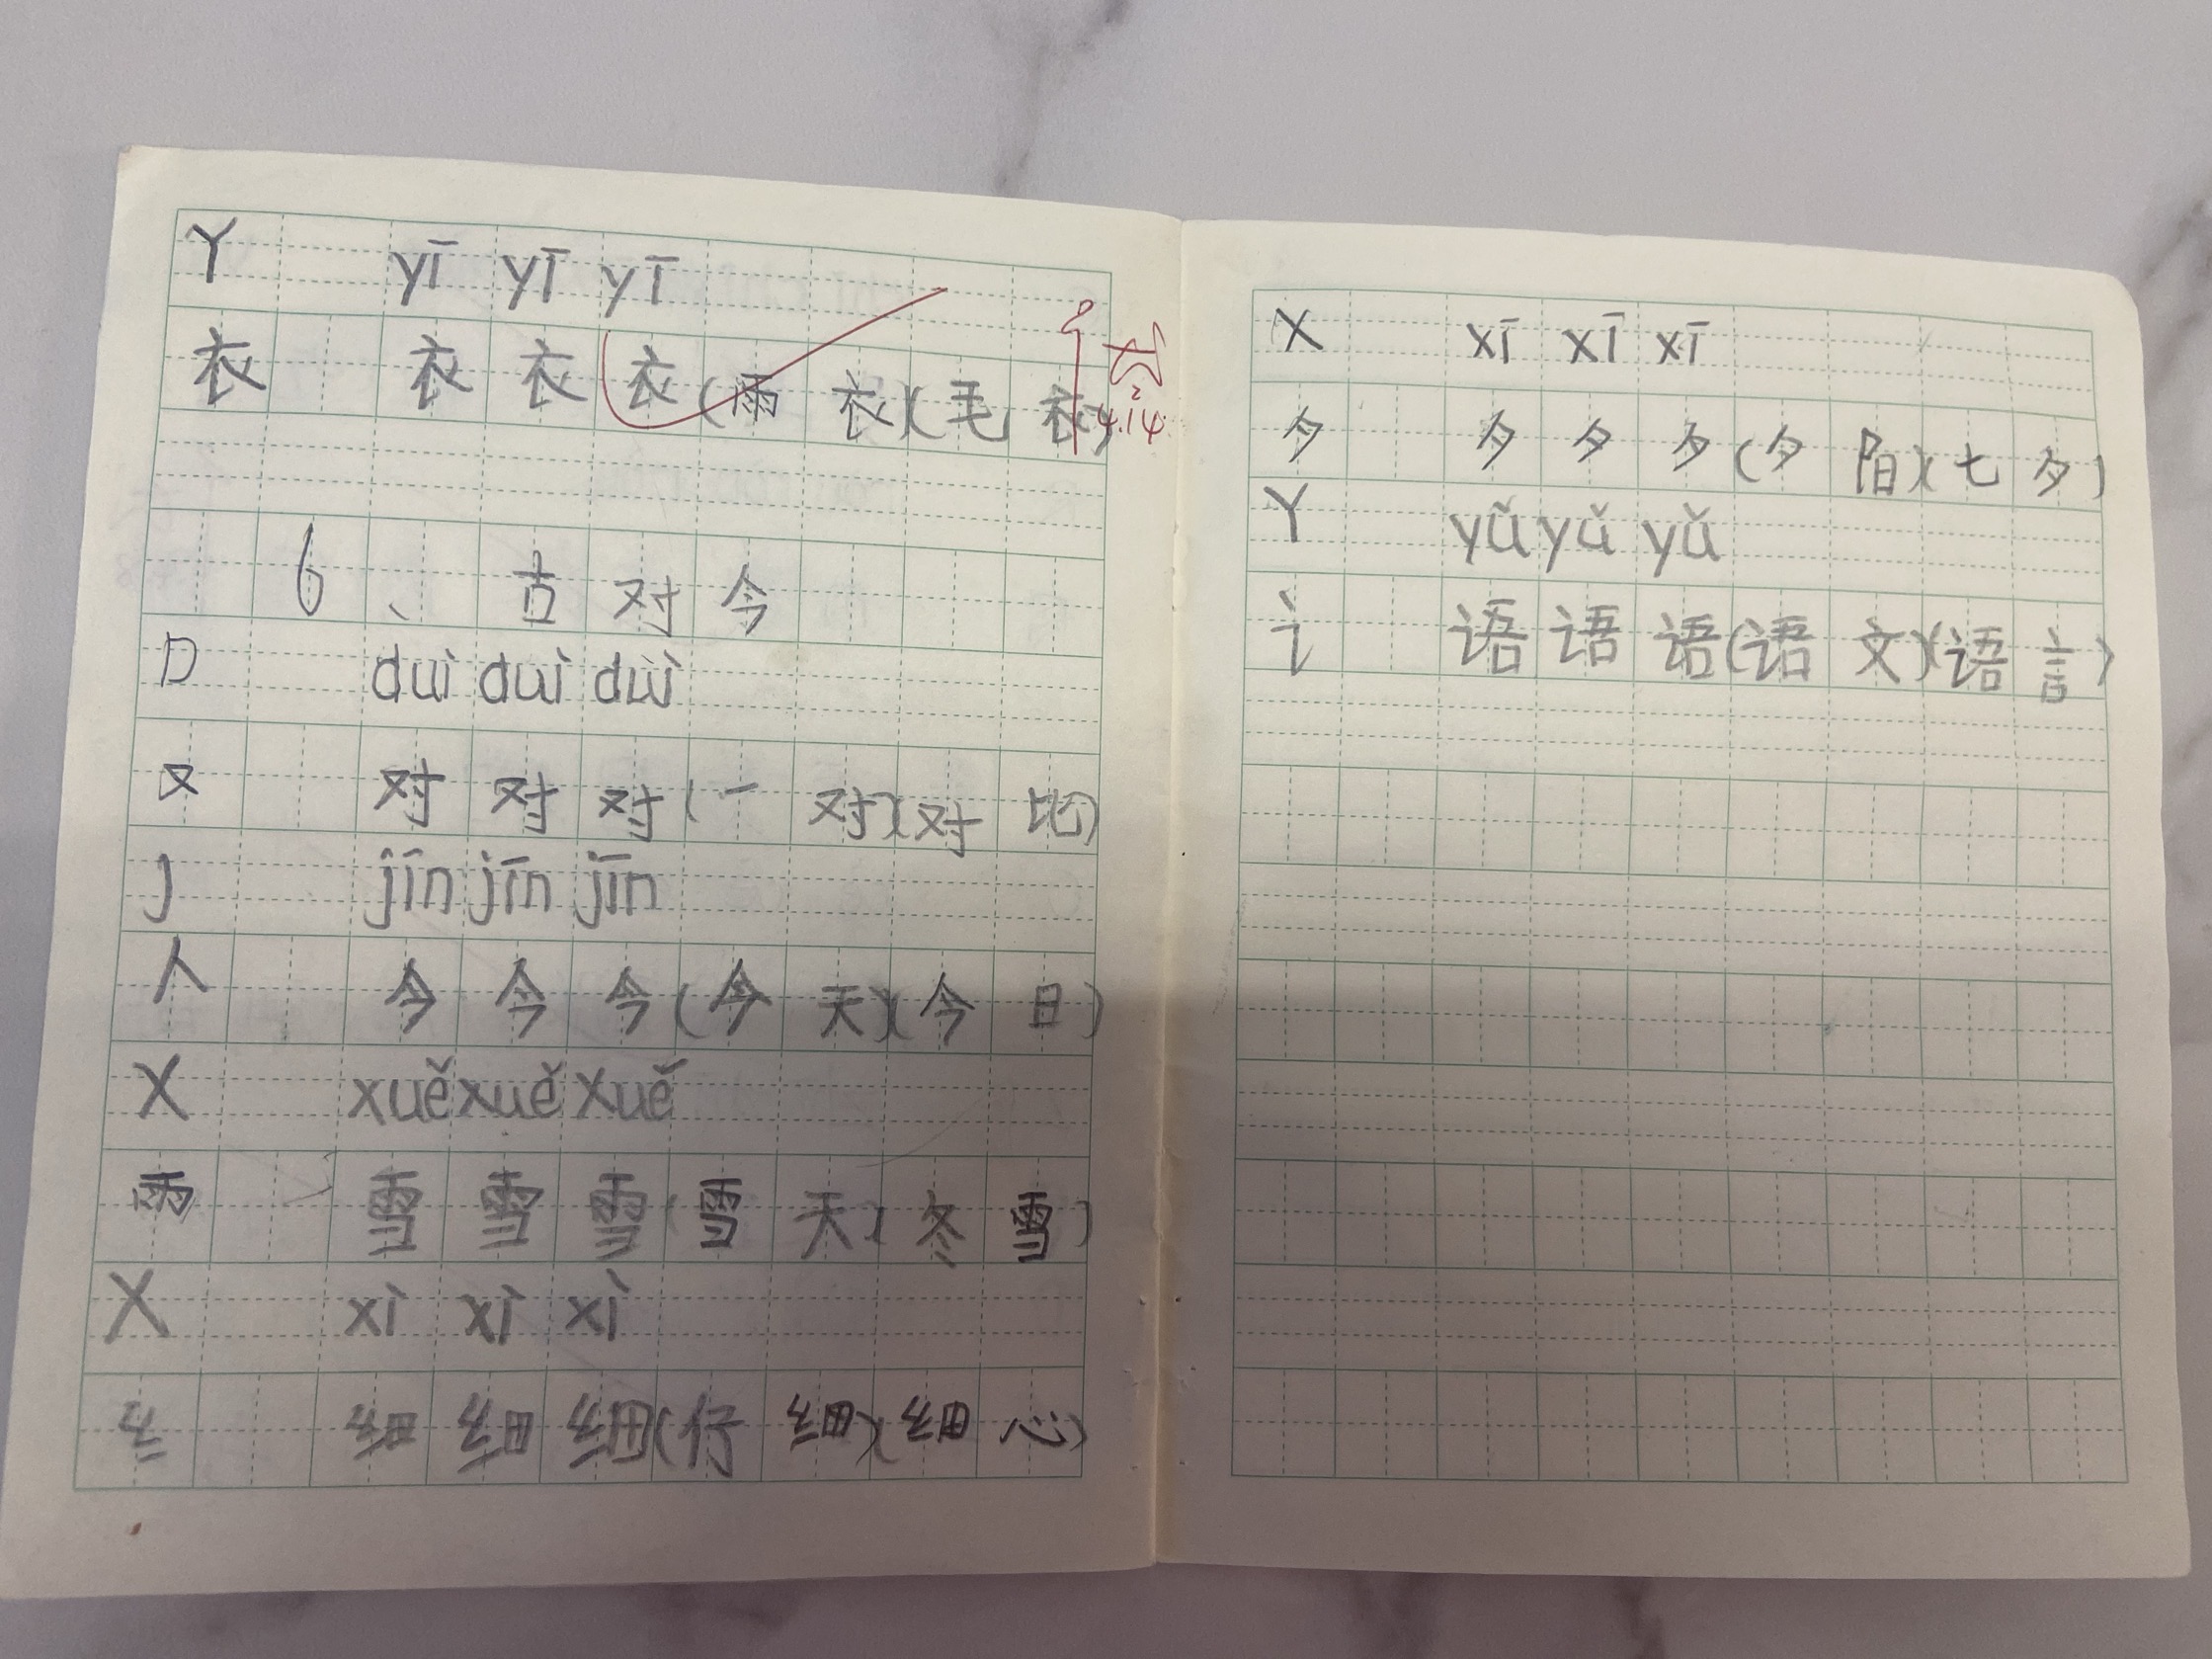 Y yī yī yī
衣 衣 衣 衣 (雨 衣)(毛 衣)
4.14
6、 古 对 今
D duì duì duì
又 对 对 对 (一 对)(对 比)
J jīn jīn jīn
人 今 今 今 (今 天)(今 日)
X xuě xuě xuě
雨 雪 雪 雪 (雪 天)(冬 雪)
X xì xì xì
纟 细 细 细 (仔 细)(细 心)
X xī xī xī
夕 夕 夕 夕 (夕 阳)(七 夕)
Y yǔ yǔ yǔ
讠 语 语 语 (语 文)(语 言)